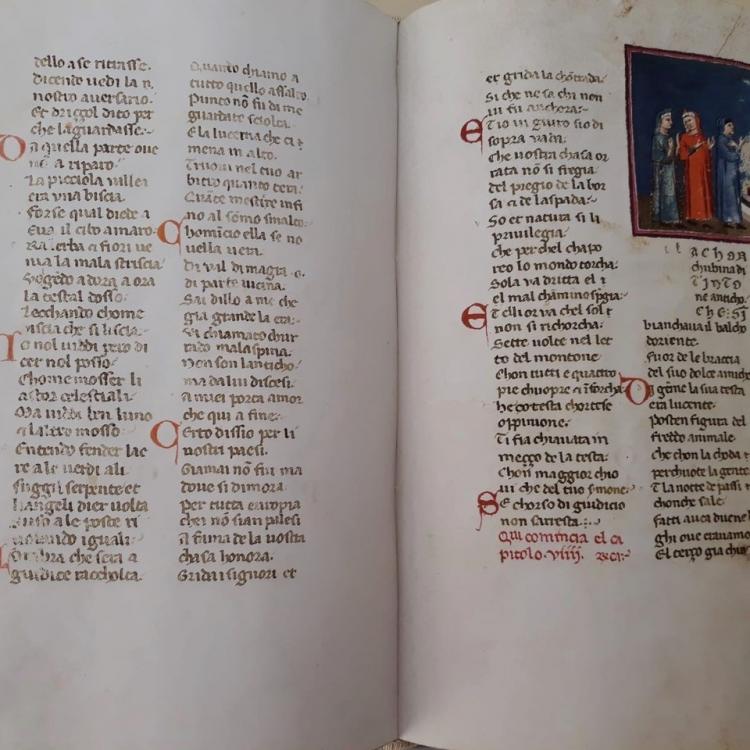 dello a se ritrasse.
dicendo uedi la n.
nostro auersario.
Et driççol dito per
che la guardasse.
Da quella parte oue
nõ a riparo.
La picciola uallea
era vna biscia.
Forse qual diede a
Eua il cibo amaro.
Tra lerba e fiori ue
nia la mala striscia
Volgẽdo adora a ora
la testa al dosso.
Lecchando chome
biscia che si liscia.
Io nol uiddi pero di
cer nol posso.
Chome mosser li
astor celestiali.
Ma uiddi ben luno
e laltro mosso.
Sentendo fender lae
re a le uerdi ali.
Fuggi serpente et
langeli dier uolta
Suso a le poste ri
uolando iguali.
Lombra che sera a
giudice racholta.
Quanto chiamo a
tutto quello assalto.
Punto nõ fu da me
guardare sciolta.
Se la lucerna che ti
mena in alto.
Truoui nel tuo ar
bitro quanto cera.
Quãt e mestire infi
no al sõmo smalto.
Chominciò ella se no
uella uera.
Di val di magra o.
di parte uicina.
Sai dillo a me che
gia grande la era.
Vi chiamato chur
rado malaspina.
Non son lanticho.
ma da lui discesi.
A miei portai amor
che qui a fine.
Certo dissio per li
uostri paesi.
Giamai nõ fui ma
doue si dimora.
Per tutta europia
chei nõ sian palesi
La fama de la uostra
chasa honora.
Grida i signori et
et grida la chõtrada.
Si che ne sa chi non
ui fu anchora.
Et io ui giuro sio di
sopra vada.
Che uostra chasa or
rata nõ si fregia
del pregio de la bor
sa e de laspada.
Vso et natura si li
priuilegia
Che perchel chapo
reo lo mondo torcha.
Sola va dritta el i
el mal chãmino spgia.
Et elli or va chel sol e
non si richorcha.
Sette uolte nel let
to del montone
Chon tutti e quattro
pie chiuopre e inforcha.
Che cotesta chortese
oppinione.
Ti fia chiauata in
meçço de la testa.
Chon maggior chio
ui che del tuo smone.
Se chorso di giudicio
non sarresta.
Qui comincia el ca
pitolo .viiii.
LA CHON
chubina di
TITO
ne anticho.
CHE SI
bianchaua il balcho
doriente.
Fuor de le braccia
del suo dolce amicho
Di gẽme la sua testa
era lucente.
Posten figura del
freddo animale.
Che chon la choda
perchuote la gente.
E la notte de passi
chonche sale
Fatti auea duene l
ghi oue erauamo
El terço gia chiu